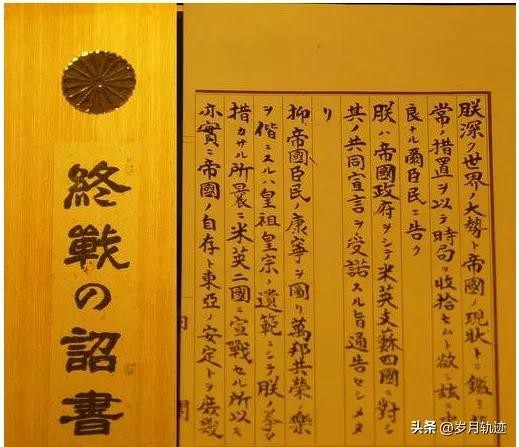 終戰の詔書
朕深ク世界ノ大勢ト帝國ノ現狀トニ鑑ミ
常ノ措置ヲ以テ時局ヲ收拾セムト欲シ茲ニ
良ナル爾臣民ニ告ク
朕ハ帝國政府ヲシテ米英支蘇四國ニ對シ
其ノ共同宣言ヲ受諾スル旨通告セシメタ
リ
抑帝國臣民ノ康寧ヲ圖リ萬邦共榮ノ樂
ヲ偕ニスルハ皇祖皇宗ノ遺範ニシテ朕ノ拳
措カサル所曩ニ米英二國ニ宣戰セル所以モ
亦實ニ帝國ノ自存ト東亞ノ安定トヲ庶幾
头条 @岁月轨迹